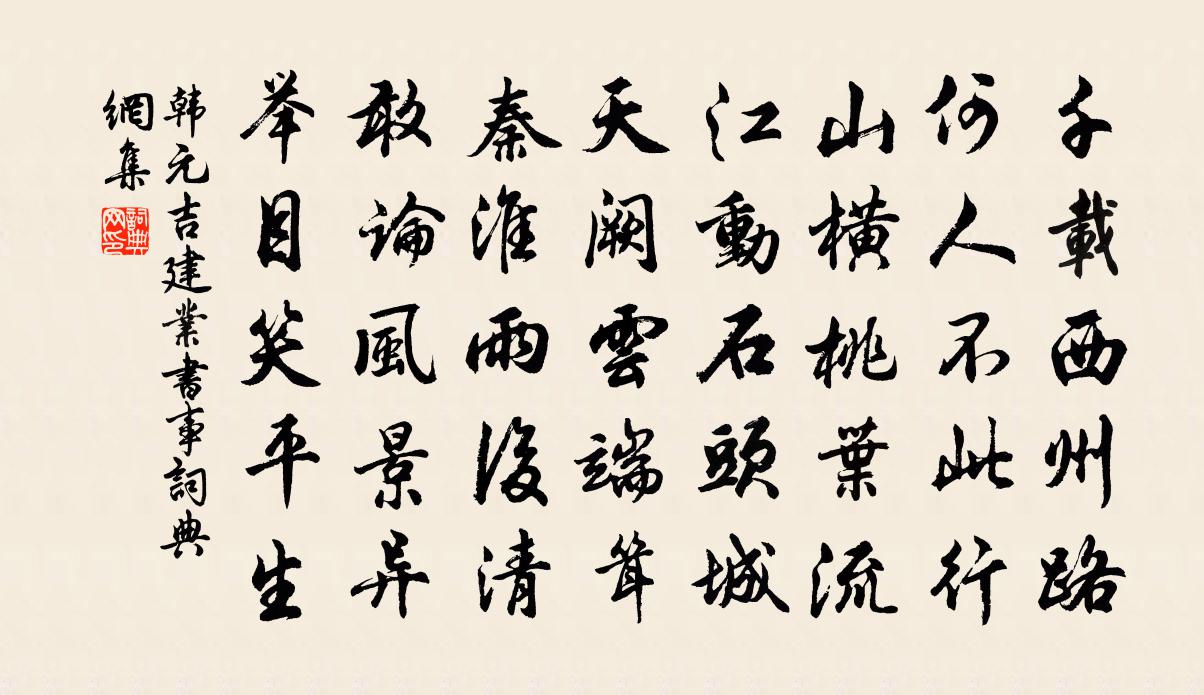 千載西州路
何人不此行
山橫桃葉流
江動石頭城
天闕雲端聳
秦淮雨後清
敢論風景异
举目笑平生
韩元吉建業書事詞典
網集
詞典
网印